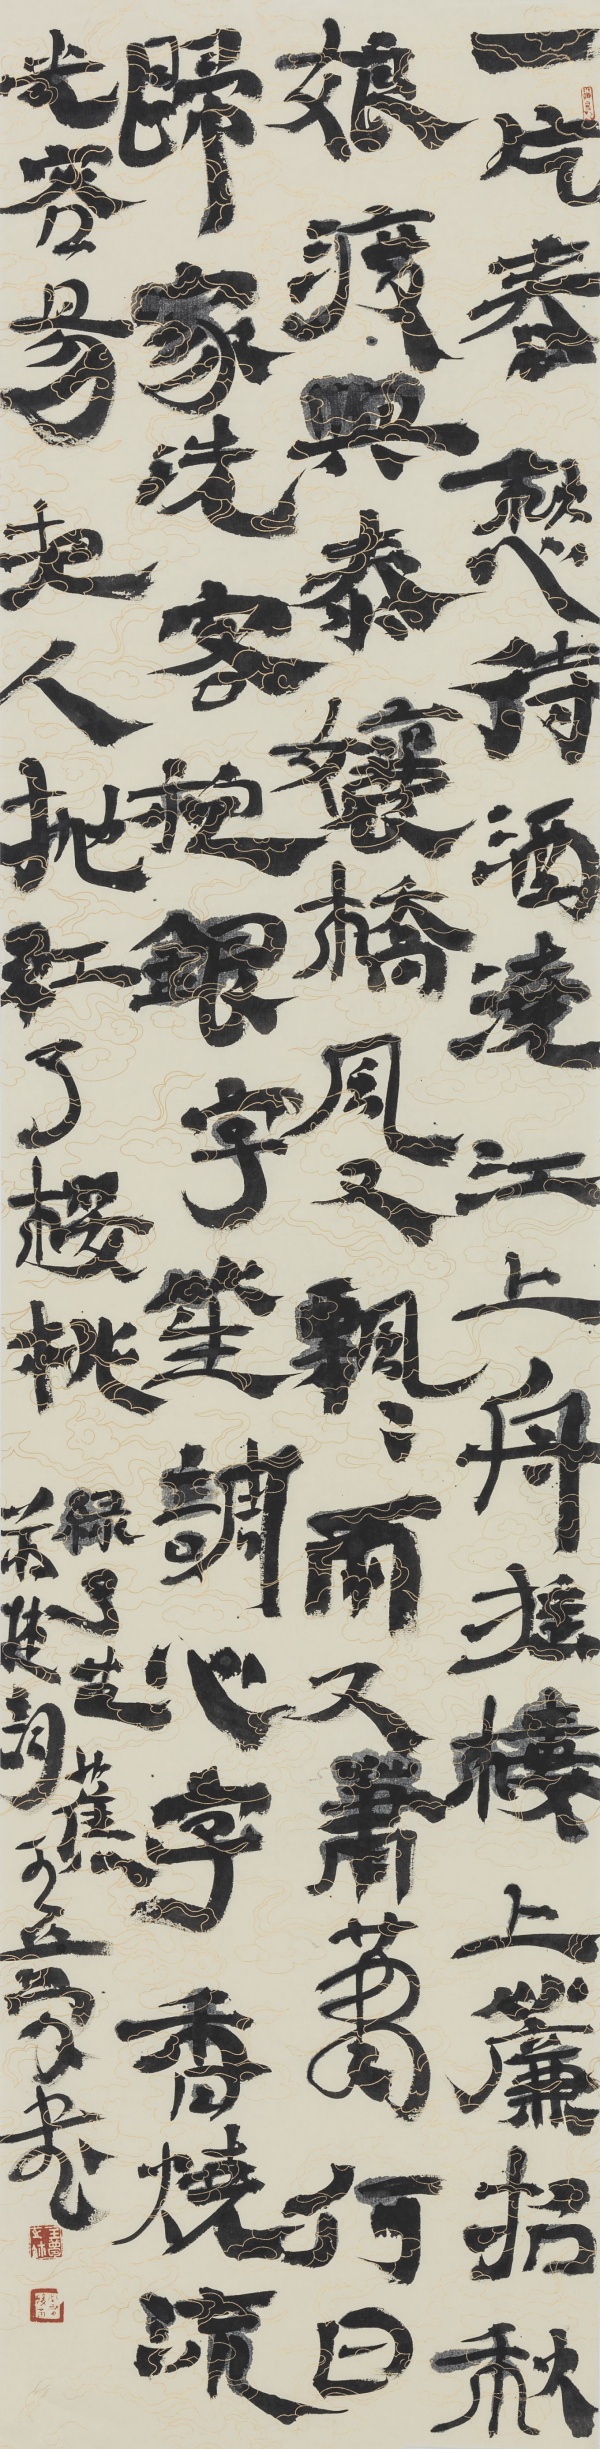 一片春愁待酒澆江上舟摇樓上簾招秋
娘渡與泰孃橋風又飄〻雨又蕭萧何日
歸家洗客袍銀字笙調心字香燒流
光容易把人抛紅了樱桃
緑了芭蕉
蔣捷詞